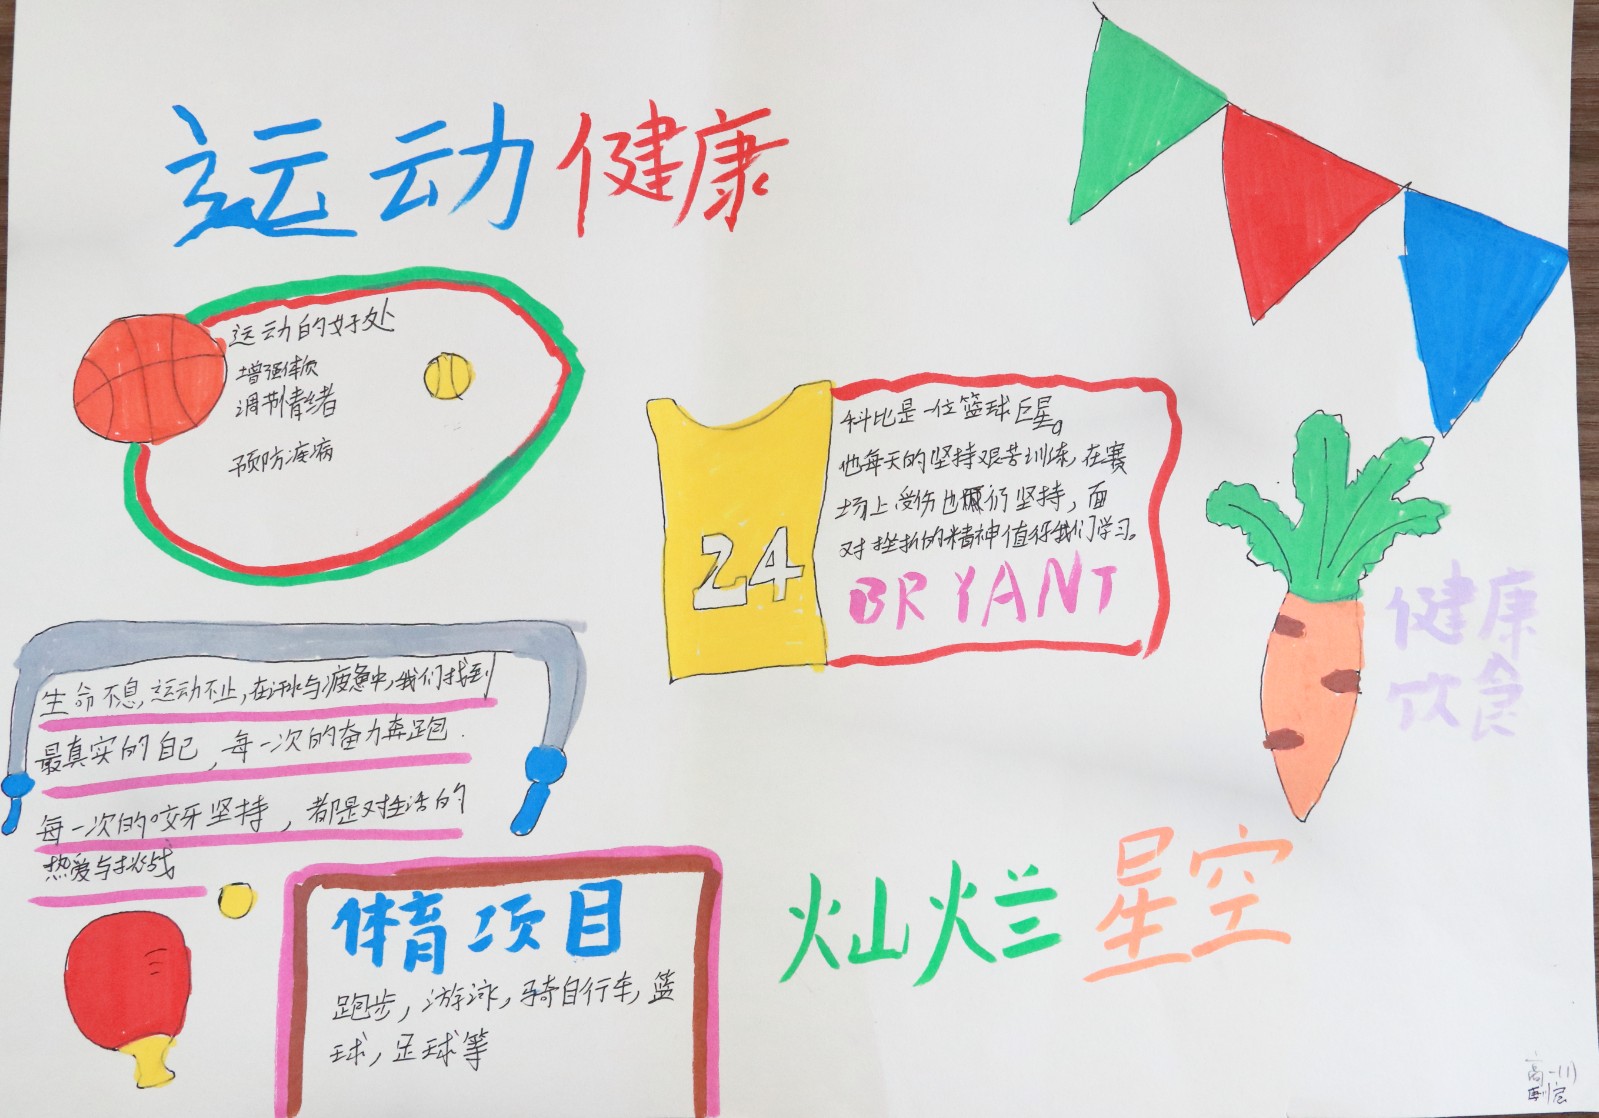 运动健康
运动的好处
增强体质
调节情绪
预防疾病
科比是一位篮球巨星。
他每天的坚持艰苦训练,在赛
场上受伤也仍坚持,面
对挫折的精神值得我们学习。
24
BRYANT
生命不息,运动不止,在汗水与疲惫中,我们找到
最真实的自己,每一次的奋力奔跑.
每一次的咬牙坚持,都是对生活的
热爱与挑战
健康
饮食
体育项目
跑步,游泳,骑自行车,篮
球,足球等
灿烂星空
高一(1)